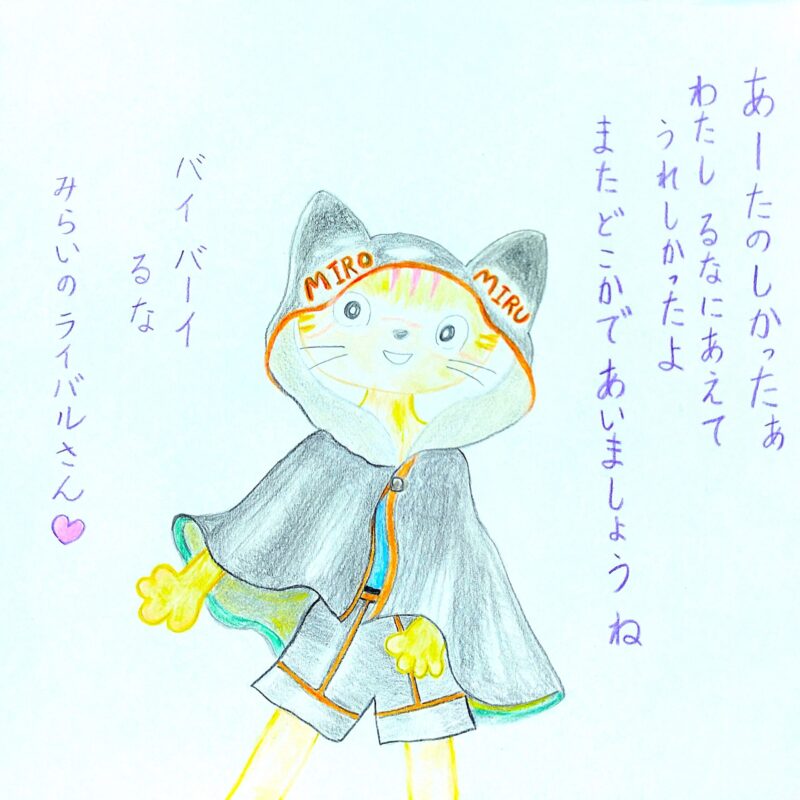 あーたのしかったぁ
わたし るなにあえて
うれしかったよ
またどこかで あいましょうね
MIRO
MIRU
バイ バーイ
るな
みらいの ライバルさん